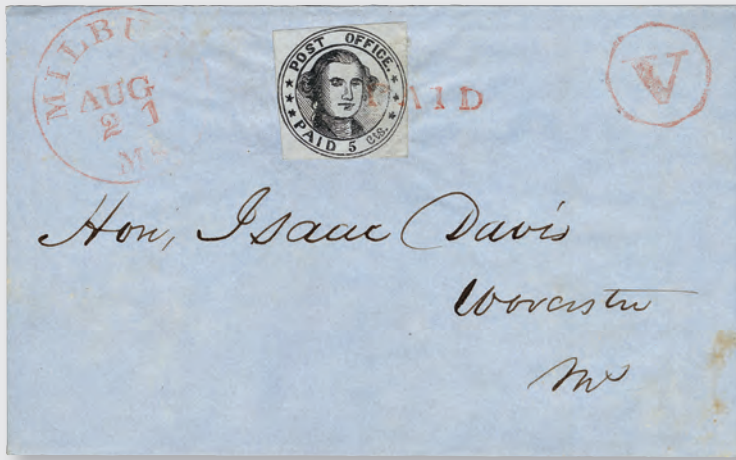 MILBU
AUG
21
MA
POST OFFICE.
PAID 5 cts.
PAID
V
Hon, Isaac Davis
Worcester
Ms